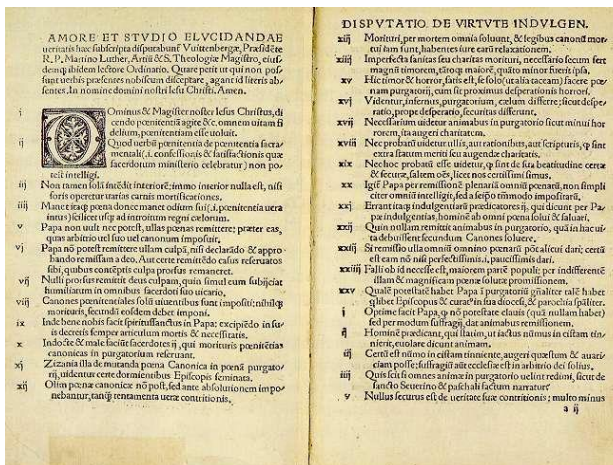 AMORE ET STVDIO ELVCIDANDAE
ueritatis hæc subscripta disputabunť Vuittenbergæ, Præsidēte
R. P. Martino Luther, Artiū & S. Theologiæ Magistro, eiusdemq́ ibidem lectore Ordinario. Quare petit ut qui non possunt uerbis præsentes nobiscum disceptare, agant id literis absentes. In nomine domini nostri Iesu Christi. Amen.
i Ominus & Magister noster Iesus Christus, dicendo pœnitentiā agite &c. omnem uitam fidelium, pœnitentiam esse uoluit.
ij Quod uerbū pœnitentia de pœnitentia sacramentali (.i. confessionis & satisfactionis quæ sacerdotum ministerio celebratur) non potest intelligi.
iij Non tamen solā intēdit interiorē: immo interior nulla est, nisi
foris operetur uarias carnis mortificationes.
iiij Manet itaq́ pœna donec manet odium sui (.i. pœnitentia uera
intus) scilicet usq́ ad introitum regni cælorum.
v Papa non uult nec potest, ullas pœnas remittere: præter eas,
quas arbitrio uel suo uel canonum imposuit.
vj Papa nō potest remittere ullam culpā, nisi declarādo & approbando remissam a deo. Aut certe remittēdo casus reseruatos
sibi, quibus contēptis culpa prorsus remaneret.
vij Nulli prorsus remittit deus culpam, quin simul eum subijciat
humiliatum in omnibus sacerdoti suo uicario.
viij Canones pœnitentiales solū uiuentibus sunt impositi: nihilq́
morituris, secundū eosdem debet imponi.
ix Inde bene nobis facit spiritussanctus in Papa: excipiēdo in suis decretis semper articulum mortis & necessitatis.
x Indocte & male faciūt sacerdotes ij, qui morituris pœnitētias
canonicas in purgatorium reseruant.
xj Zizania illa de mutanda pœna Canonica in pœnā purgatorij, uidentur certe dormientibus Episcopis seminata.
xij Olim pœnæ canonicæ nō post, sed ante absolutionem imponebantur, tanq̄ tentamenta ueræ contritionis.
DISPVTATIO DE VIRTVTE INDVLGEN.
xiij Morituri, per mortem omnia soluunt, & legibus canonū mortui iam sunt, habentes iure earū relaxationem.
xiiij Imperfecta sanitas seu charitas morituri, necessario secum fert
magnū timorem, tātoq́ maiorē, quāto minor fuerit ipsa.
xv Hic timor & horror, satis est, se solo (ut alia taceam) facere pœnam purgatorij, cum sit proximus desperationis horrori.
xvj Videntur, infernus, purgatorium, cælum differre: sicut desperatio, prope desperatio, securitas differunt.
xvij Necessarium uidetur animabus in purgatorio sicut minui horrorem, ita augeri charitatem.
xviij Nec probatū uidetur ullis, aut rationibus, aut scripturis, q̄ sint
extra statum meriti seu augendæ charitatis.
xix Nec hoc probatū esse uidetur, q̄ sint de sua beatitudine certæ
& securæ, saltem oēs, licet nos certissimi simus.
xx Igiť Papa per remissionē plenariā omniū pœnarū, non simpliciter omniū intelligit, sed a seipō tm̄modo impositarū.
xxj Errant itaq́ indulgentiarū prædicatores ij, qui dicunt per Papæ indulgentias, hominē ab omni pœna solui & saluari.
xxij Quin nullam remittit animabus in purgatorio, quā in hac uita debuissent secundum Canones soluere.
xxiij Si remissio ulla omniū omnino pœnarū pōt alicui dari: certū
est eam nō nisi perfectissimis, .i. paucissimis dari.
xxiiij Falli ob id necesse est, maiorem partē populi: per indifferentē
illam & magnificam pœnæ solutæ promissionem.
xxv Qualē potestatē habet Papa ī purgatoriū gn̄aliter talē habet
q̄libet Episcopus & curat9 in sua diocesi, & parochia sp̄aliter.
i Optime facit Papa, q̄ nō potestate clauis (quā nullam habet)
sed per modum suffragij, dat animabus remissionem.
ij Hominē prædicant, qui statim, ut iactus nūmus in cistam tinnierit, euolare dicunt animam.
iij Certū est nūmo in cistam tinniente, augeri quæstum & auariciam posse: suffragiū aūt ecclesiæ est in arbitrio dei solius.
iiij Quis scit si omnes animæ in purgatorio uelint redimi, sicut de
sancto Seuerino & paschali factum narratur.
v Nullus securus est de ueritate suæ contritionis: multo minus
a ij